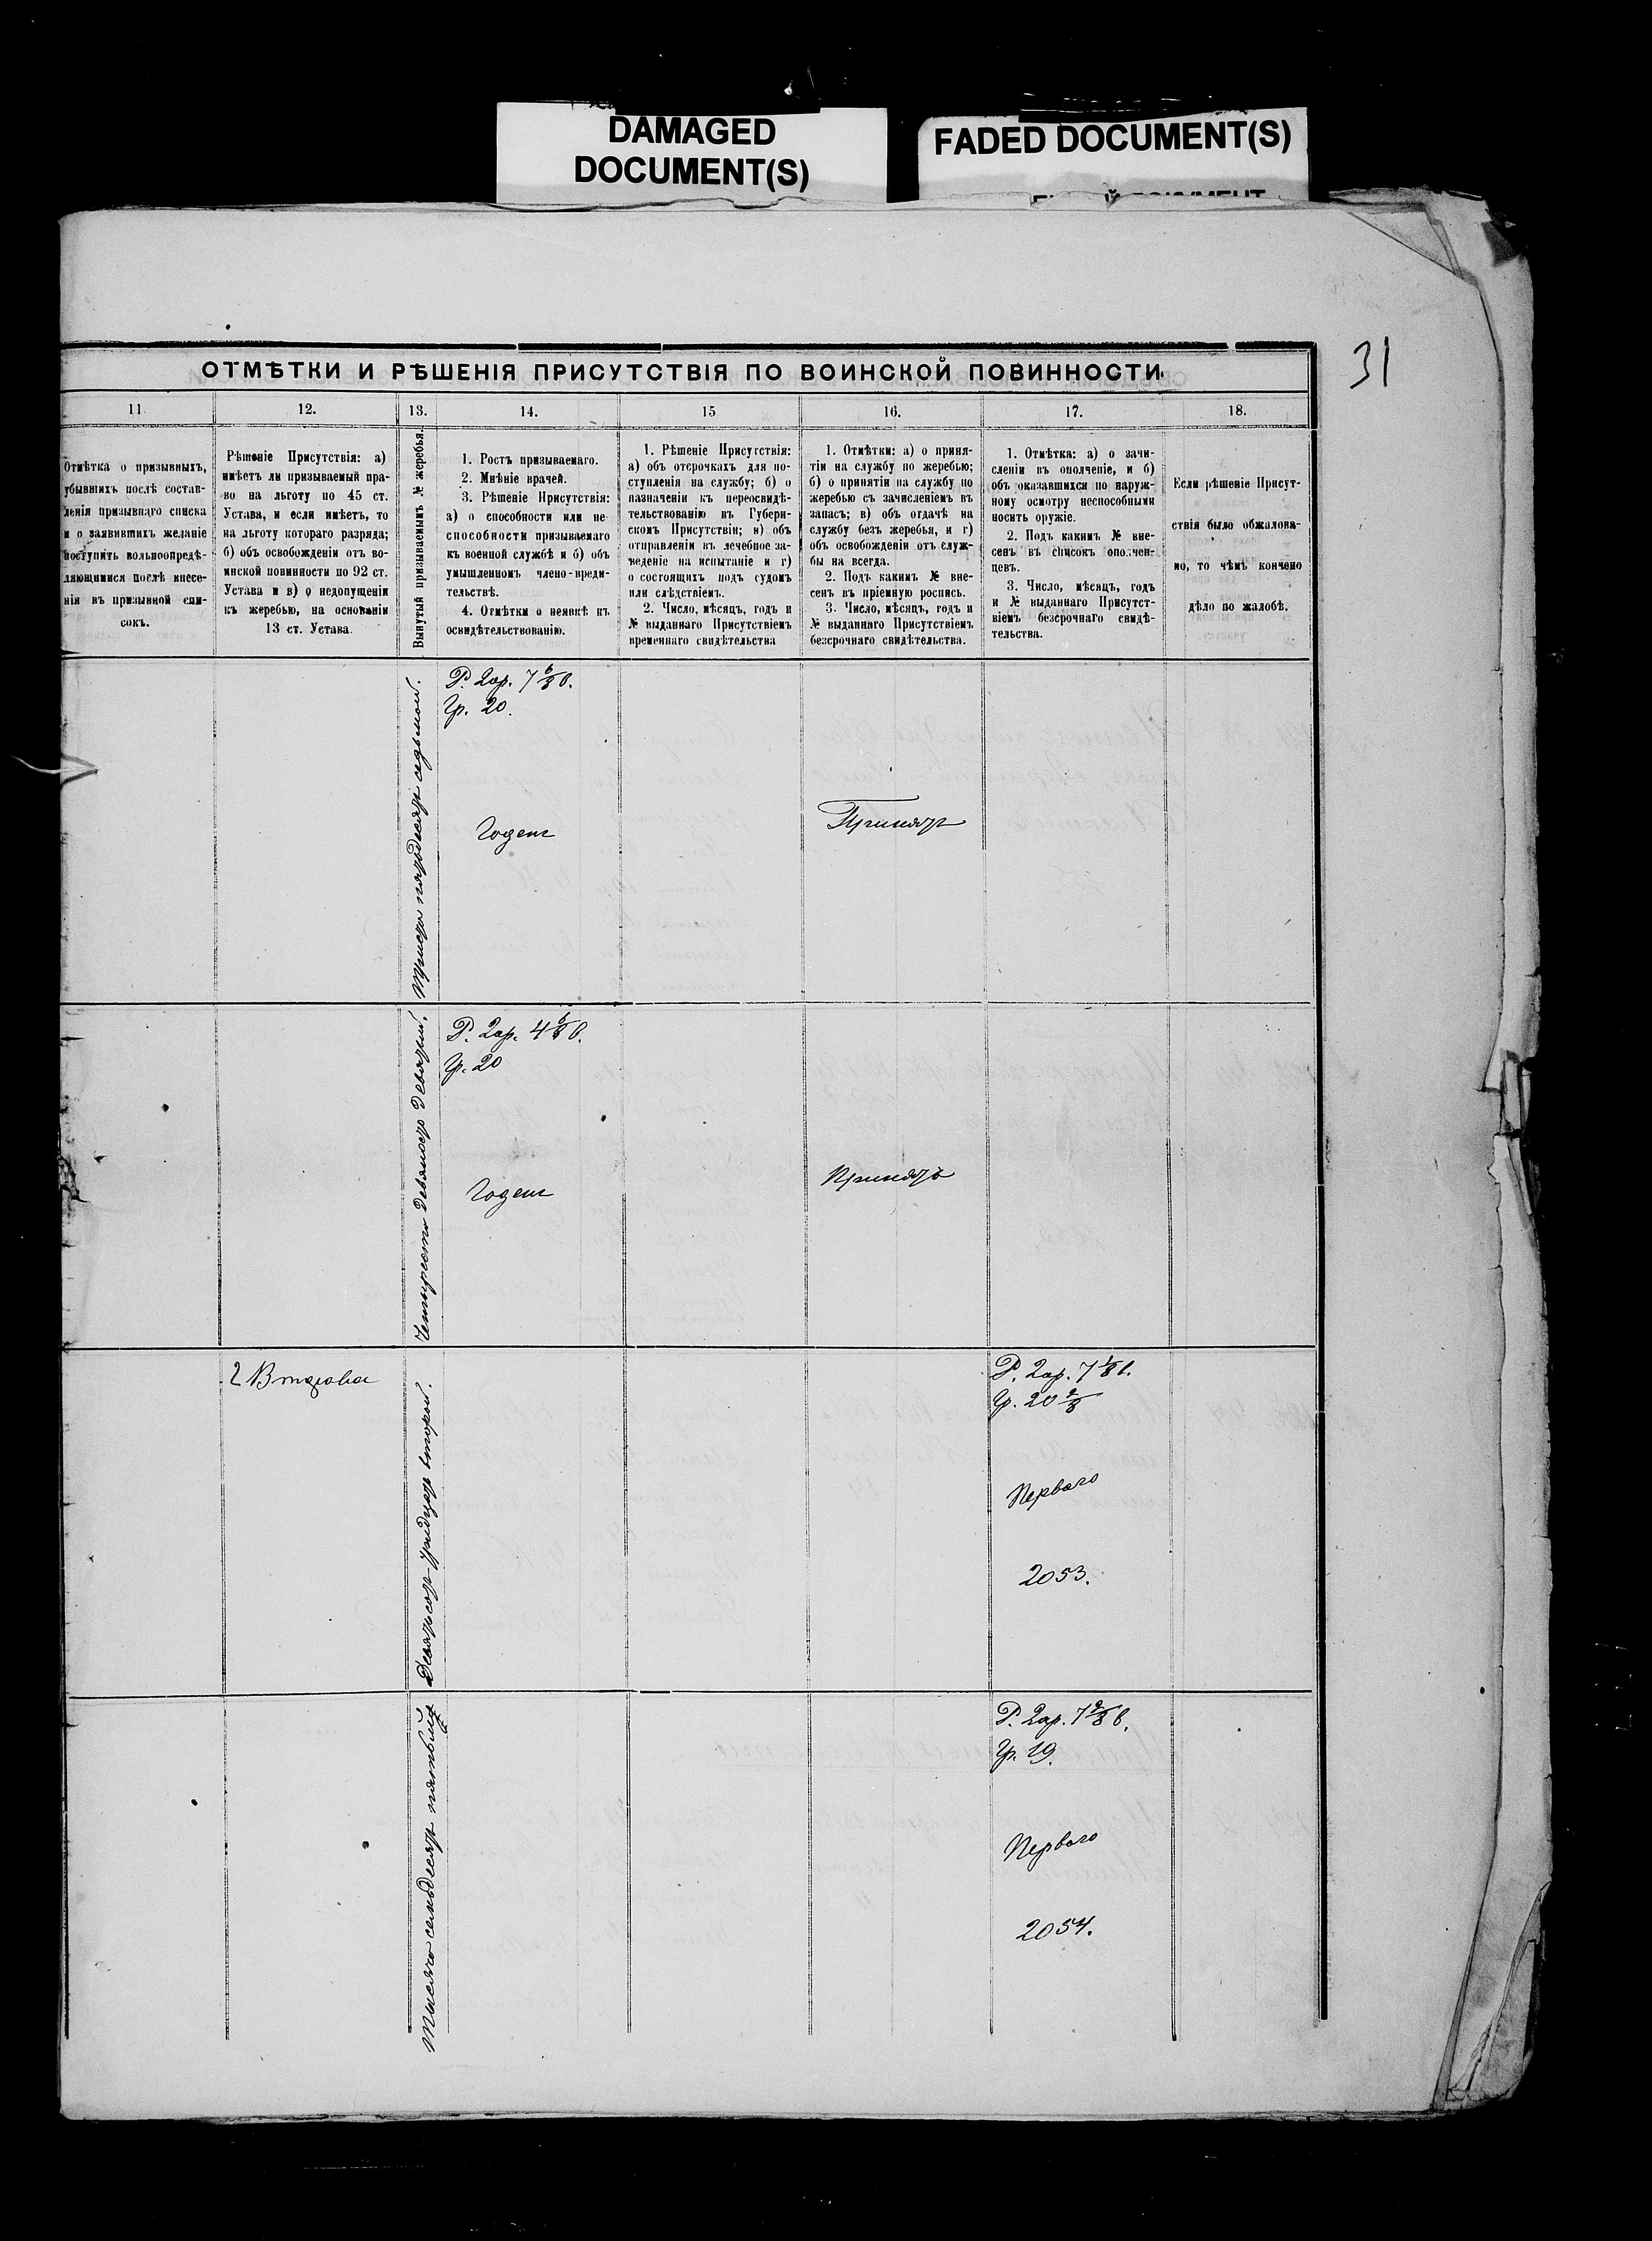 DAMAGED
DOCUMENT(S)
FADED DOCUMENT(S)
31
ОТМѢТКИ И РѢШЕНІЯ ПРИСУТСТВІЯ ПО ВОИНСКОЙ ПОВИННОСТИ.
11
12.
13.
14.
15
16.
17.
18.
Отмѣтка о призывныхъ,
убывшихъ послѣ состав-
ленія призывнаго списка
и о заявившихъ желаніе
поступить вольноопредѣ-
ляющимися послѣ внесе-
нія въ призывной спи-
сокъ.
Рѣшеніе Присутствія: а)
имѣетъ ли призываемый пра-
во на льготу по 45 ст.
Устава, и если имѣетъ, то
на льготу котораго разряда;
б) объ освобожденіи отъ во-
инской повинности по 92 ст.
Устава и в) о недопущеніи
къ жеребью, на основаніи
13 ст. Устава.
Вынутый призываемымъ № жеребья.
1. Ростъ призываемаго.
2. Мнѣніе врачей.
3. Рѣшеніе Присутствія:
а) о способности или не-
способности призываемаго
къ военной службѣ и б) объ
умышленномъ члено-вреди-
тельствѣ.
4. Отмѣтки о неявкѣ къ
освидѣтельствованію.
1. Рѣшеніе Присутствія:
а) объ отсрочкахъ для по-
ступленія на службу; б) о
назначеніи къ переосвидѣ-
тельствованію въ Губерн-
скомъ Присутствіи; и) объ
отправленіи въ лечебное за-
веденіе на испытаніе и г)
о состоящихъ подъ судомъ
или слѣдствіемъ.
2. Число, мѣсяцъ, годъ и
№ выданнаго Присутствіемъ
временнаго свидѣтельства
1. Отмѣтки: а) о приня-
тіи на службу по жеребью;
б) о принятіи на службу по
жеребью съ зачисленіемъ въ
запасъ; в) объ отдачѣ на
службу безъ жеребья, и г)
объ освобожденіи отъ служ-
бы на всегда.
2. Подъ какимъ № вне-
сенъ въ пріемную роспись.
3. Число, мѣсяцъ, годъ и
№ выданнаго Присутствіемъ
безсрочнаго свидѣтельства.
1. Отмѣтка: а) о зачи-
сленіи въ ополченіе, и б)
объ оказавшихся по наруж-
ному осмотру неспособными
носить оружіе.
2. Подъ какимъ № вне-
сенъ въ списокъ ополчен-
цевъ.
3. Число, мѣсяцъ, годъ
и № выданнаго Присутст-
віемъ безсрочнаго свидѣ-
тельства.
Если рѣшеніе Присут-
ствія было обжалова-
но, то чѣмъ кончено
дѣло по жалобѣ.
Триста пятьдесятъ седьмой.
Р. 2ар. 7 6/8 в.
Гр. 20.
Годенъ
Принятъ
Четыреста девяносто девятый.
Р. 2ар. 4 6/8 в.
Гр. 20
Годенъ
Принятъ
2 Втораго
Девятьсотъ тридцать второй.
Р. 2ар. 7 1/8 в.
Гр. 20 2/8
Перваго
2053.
Тысяча семьдесятъ пятый
Р. 2ар. 7 2/8 в.
Гр. 19.
Перваго
2054.